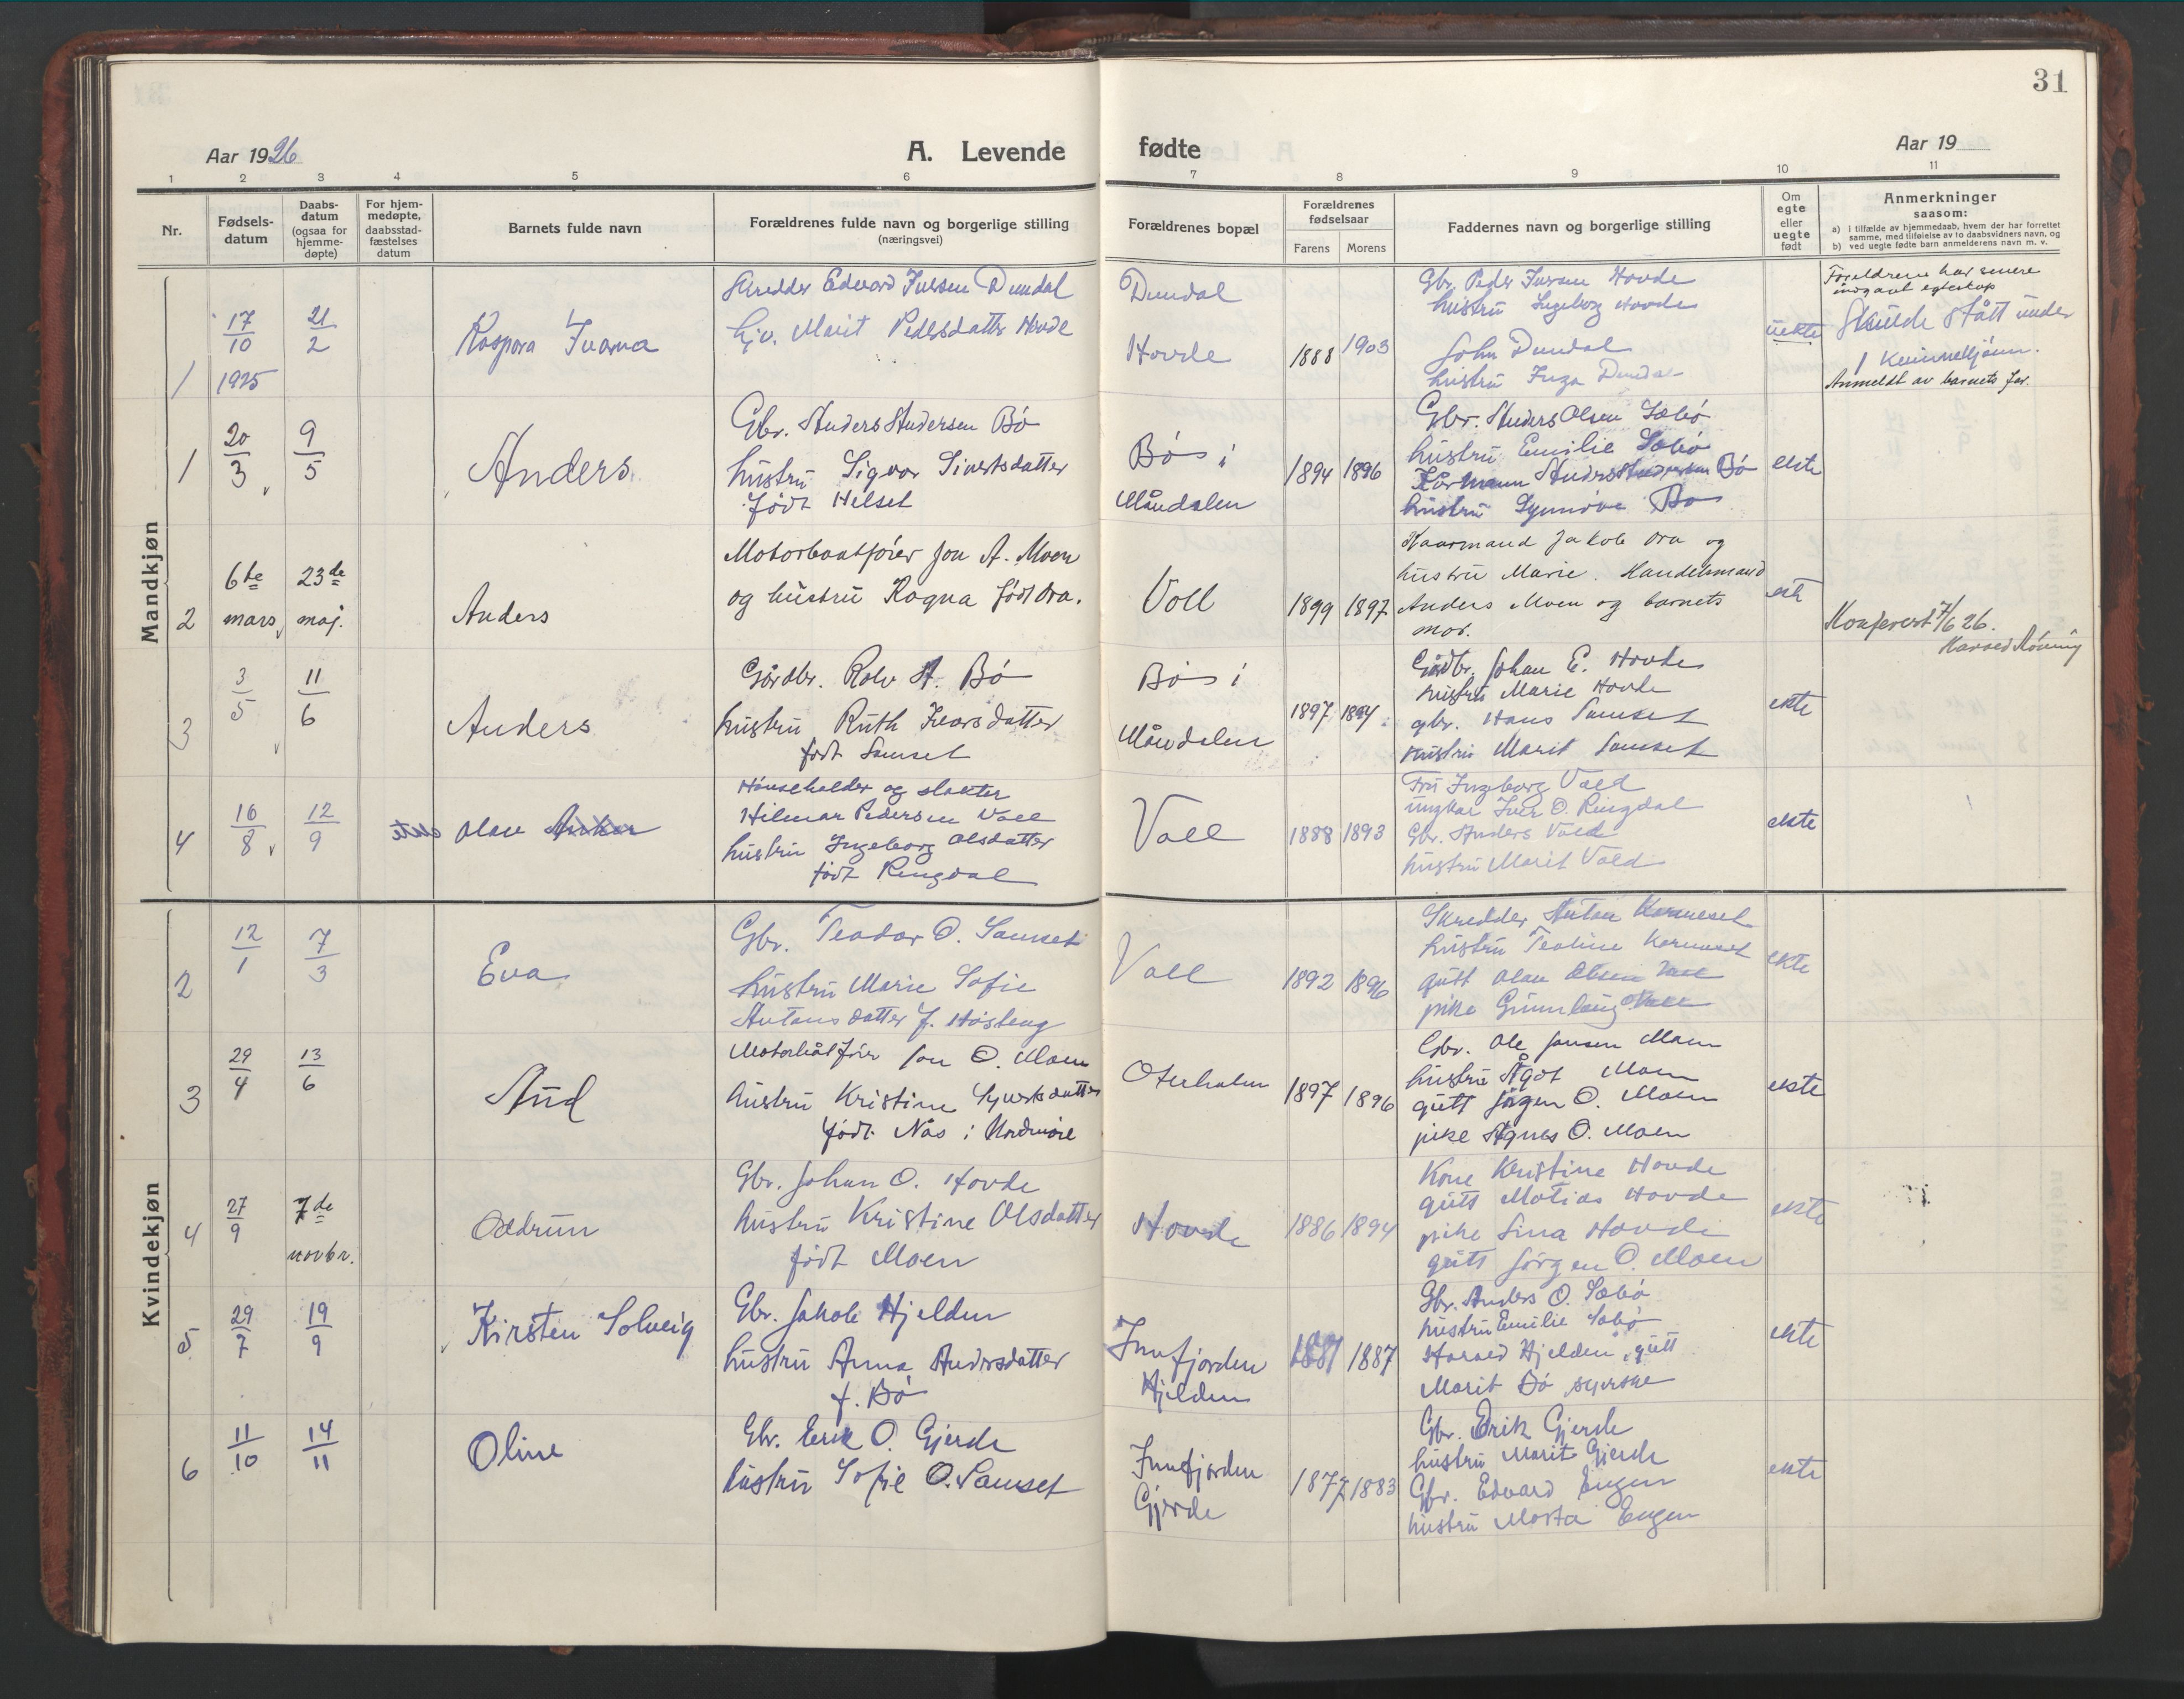 31
Aar 1926
A. Levende fødte
Aar 19
1 2 3 4 5 6 7 8 9 10 11
Nr.
Fødsels-
datum
Daabs-
datum
(ogsaa for
hjemme-
døpte)
For hjem-
medøpte,
daabsstad-
fæstelses
datum
Barnets fulde navn
Forældrenes fulde navn og borgerlige stilling
(næringsvei)
Forældrenes bopæl
Forældrenes
fødselsaar
Farens Morens
Faddernes navn og borgerlige stilling
Om
egte
eller
uegte
født
Anmerkninger
saasom:
a) i tilfælde av hjemmedaab, hvem der har forrettet
samme, med tilføielse av to daabsvidners navn, og
b) ved uegte fødte barn anmelderens navn m. v.
Mandkjøn
1
17/10 1925
21/2
Kaspora Ivarna
Skredder Edvard Iversen Dundal
Marit Pedersdatter Hovde
Dundal
Hovde
1888 1903
Gbr. Peder Iversen Hovde
hustru Ingeborg Hovde
John Dundal
hustru Inga Dundal
uekte
Foreldrene har senere
inngaat egteskap
Skulde stått under
1 kvinnekjønn.
Anmeldt av barnets far.
1
20/3
9/5
Anders
Gbr. Anders Andersen Bö
hustru Signor Sivertsdatter
född Helset
Bö i
Måndalen
1894 1896
Gbr. Anders Olsen Sæbö
hustru Emilie Sæbö
Kårmann Anders Andersen Bö
hustru Synnöve Bö
ekte
2
6te mars
23de maj.
Anders
Motorbaatförer Jon A. Moen
og hustru Ragna född Ora.
Voll
1899 1897
Kaarmand Jakob Ora og
hustru Marie. Handelsmand
Anders Moen og barnets
mor.
ekte
Konferert 7/6 26.
3
3/5
11/6
Anders
Gårdbr. Rolv A. Bö
hustru Ruth Ivarsdatter
född Samset
Bö i
Måndalen
1897 1894
Gårdbr. Johan E. Hovde
hustru Marie Hovde
gbr. Hans Samset
hustru Marit Samset
ekte
4
16/8
12/9
Olav
Hönseholder og slakter
Hilmar Pedersen Voll
hustru Ingeborg Olsdatter
född Ringdal
Voll
1888 1893
Fru Ingeborg Vold
ungkar Iver O. Ringdal
Gbr. Anders Vold
hustru Marit Vold
ekte
Kvindekjøn
2
12/1
7/3
Eva
Gbr. Teodor O. Samset
hustru Marie Sofie
Antonsdatter f.
Voll
1892 1896
Skredder Anton Korneset
hustru Teoline Korneset
gutt Olav Olsen
pike Gunnlaug
ekte
3
29/4
13/6
Aud
Motorbåtförer Jon O. Moen
hustru Kristine Sjurdsdatter
född Nås i Nordmöre
Oterholm
1897 1896
Gbr. Ole Jonsen Moen
hustru Ågot Moen
gutt Jörgen O. Moen
pike Agnes O. Moen
ekte
4
27/9
7de novbr.
Oddrun
Gbr. Johan O. Hovde
hustru Kristine Olsdatter
född Moen
Hovde
1886 1894
Kone Kristine Hovde
gutt Matias Hovde
pike Lina Hovde
gutt Jörgen O. Moen
ekte
5
29/7
19/9
Kirsten Solveig
Gbr. Jakob Hjelden
hustru Anna Andersdatter
f. Bö
Innfjorden
Hjelden
1887
Gbr. Anders O. Sæbö
hustru Emilie Sæbö
Harald Hjelden, gutt
Marit Bö syerske
ekte
6
11/10
14/11
Oline
Gbr. Erik O. Gjerde
hustru Sofie O. Samset
Innfjorden
Gjerde
1877 1883
Gbr. Erik Gjerde
hustru Marit Gjerde
Gbr. Edvard Engen
hustru Marta Engen
ekte